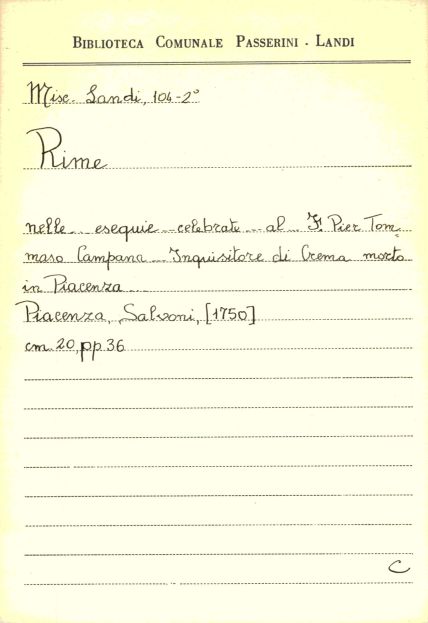 BIBLIOTECA COMUNALE PASSERINI - LANDI
Misc. Landi, 104-2°
Rime
nelle esequie celebrate al F. Pier Tom=
maso Campana Inquisitore di Crema morto
in Piacenza
Piacenza, Salvoni, [1750]
cm. 20, pp. 36
C